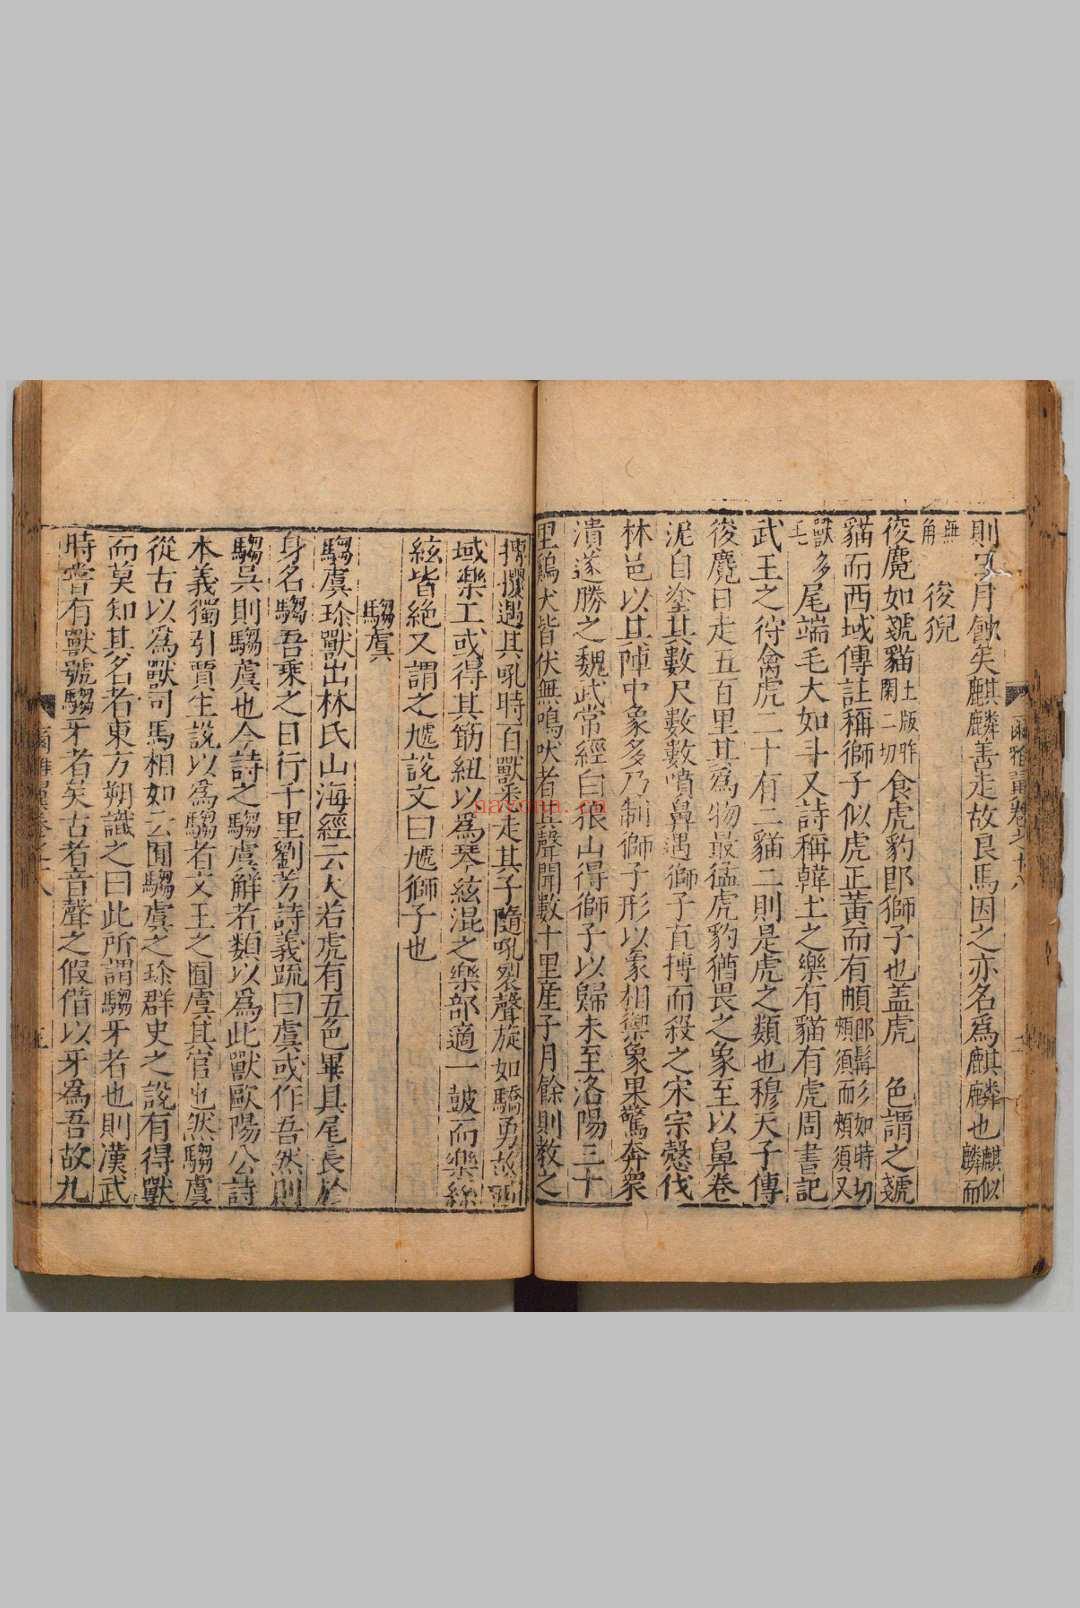 爾雅翼卷之十八
則日月蝕矣麒麟善走故良馬因之亦名爲麒麟也麒似麟而
無角
狻猊
狻麑如虦貓士版昨閑二切食虎豹即獅子也盖虎 色謂之虦
貓而西域傳註稱獅子似虎正黄而有髯耏耏髯形如時切頰須而頰須又
獸多毛尾端毛大如斗又詩稱韓土之樂有貓有虎周書記
武王之狩禽虎二十有二貓二則是虎之類也穆天子傳
狻麑日走五百里其爲物最猛虎豹猶畏之象至以鼻卷
泥自塗其數尺數數噴鼻遇獅子直搏而殺之宋宗慤伐
林邑以其陣中象多乃制獅子形以象相禦象果驚奔衆
潰遂勝之魏武常經白狼山得獅子以歸未至洛陽三十
里鷄犬皆伏無鳴吠者其聲聞數十里産子月餘則教之
搏攫遇其吼時百獸柔走其子隨吼裂聲旋如驕勇故西
域樂工或得其筋紐以爲琴絃混之樂部適一鼓而樂絲
絃皆絶又謂之虓說文曰虓獅子也
騶虞
騶虞珎獸出林氏山海經云大若虎有五色畢具尾長於
身名騶吾乗之日行千里劉芳詩義疏曰虞或作吾然則
騶吴則騶虞也今詩之騶虞解者類以爲此獸歐陽公詩
本義獨引賈生說以爲騶者文王之囿虞其官也然騶虞
從古以爲獸司馬相如云囿騶虞之珎群史之說有得獸
而莫知其名者東方朔識之曰此所謂騶牙者也則漢武
時嘗有獸號騶牙者矣古者音聲之假借以牙爲吾故九
爾雅翼卷之十八